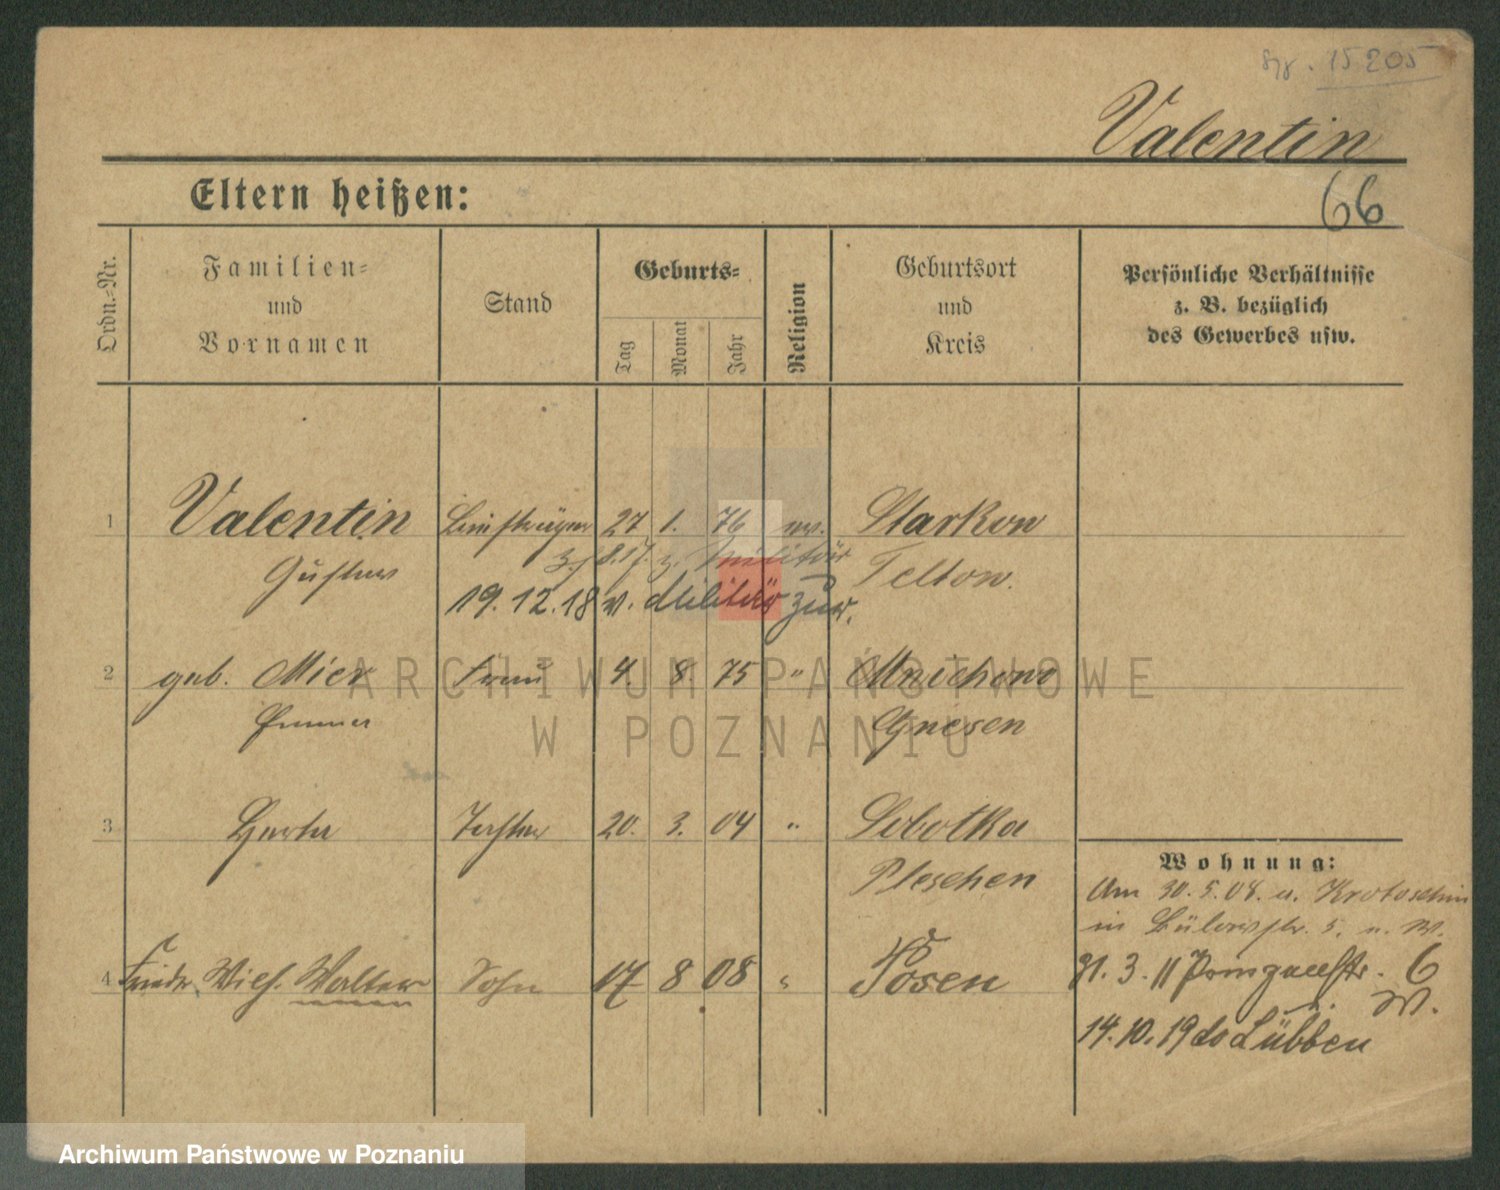 15205
Valentin
Eltern heißen:
66
Ordn.-Nr.
Familien-
und
Vornamen
Stand
Geburts-
Tag
Monat
Jahr
Religion
Geburtsort
und
Kreis
Persönliche Verhältnisse
z. B. bezüglich
des Gewerbes usw.
1 Valentin 27 1. 76 ev. Starkow
Gustav z. Militär Teltow.
19.12.18 v. Militär zur.
2 geb. Mier Frau 4. 8. 75 " Mnichowo
Emma Gnesen
3 Herta Tochter 20. 3. 04 " Sobotka
Pleschen
Wohnung:
Am 30.5.08. a. Krotoschin
in Bülowstr. 5. n. W.
4 Friedr. Wilh. Walter Sohn 17 8 08 " Posen
31.3.11 Prinzenstr. 6
W.
14.10.19 do Lübben
ARCHIWUM PAŃSTWOWE
W POZNANIU
Archiwum Państwowe w Poznaniu